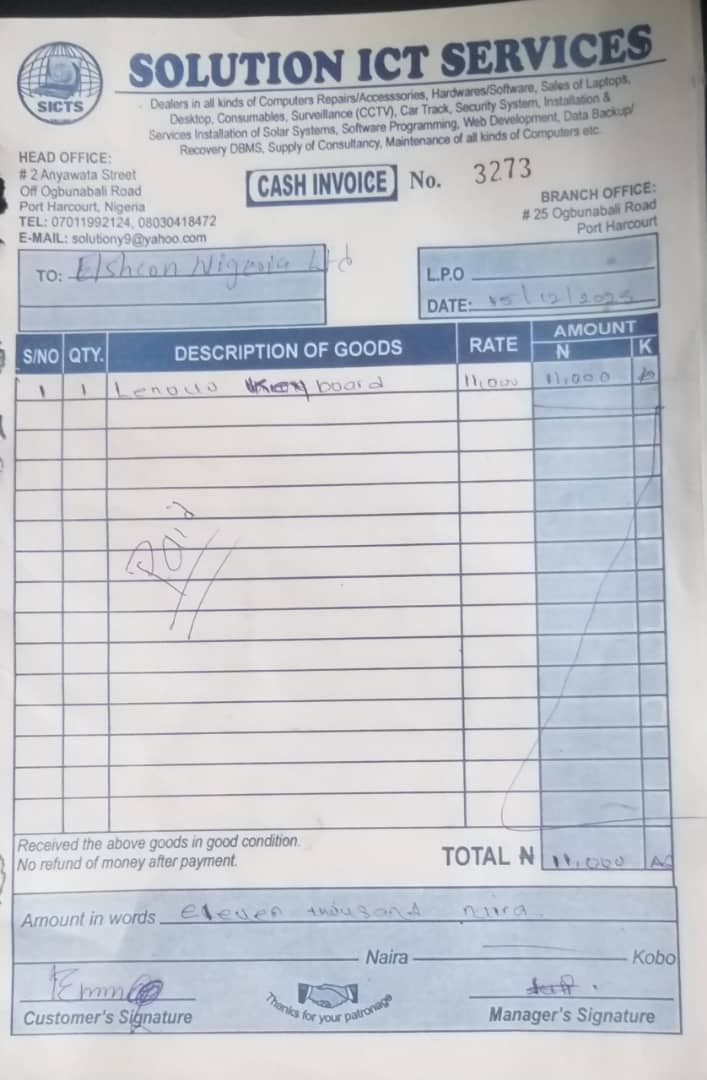 SICTS
SOLUTION ICT SERVICES
Dealers in all kinds of Computers Repairs/Accesssories, Hardwares/Software, Sales of Laptops,
Desktop, Consumables, Surveillance (CCTV), Car Track, Security System, Installation &
Services Installation of Solar Systems, Software Programming, Web Development, Data Backup/
Recovery DBMS, Supply of Consultancy, Maintenance of all kinds of Computers etc.
HEAD OFFICE:
# 2 Anyawata Street
Off Ogbunabali Road
Port Harcourt, Nigeria
TEL: 07011992124, 08030418472
E-MAIL: solutiony9@yahoo.com
CASH INVOICE No. 3273
BRANCH OFFICE:
# 25 Ogbunabali Road
Port Harcourt
TO: Elshcon Nigeria Ltd
L.P.O
DATE: 15/12/2025
S/NO QTY. DESCRIPTION OF GOODS RATE AMOUNT
N K
1 1 Lenovo Keyboard 11,000 11,000
Paid
Received the above goods in good condition.
No refund of money after payment.
TOTAL N 11,000
Amount in words eleven thousand naira
Naira Kobo
Customer's Signature
Thanks for your patronage
Manager's Signature